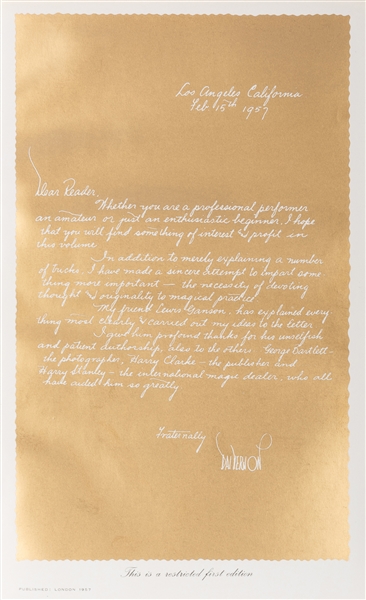 Los Angeles California
Feb. 15th 1957
Dear Reader,
Whether you are a professional performer
an amateur or just an enthusiastic beginner, I hope
that you will find something of interest & profit in
this volume
In addition to merely explaining a number
of tricks, I have made a sincere attempt to impart some-
thing more important — the necessity of devoting
thought & originality to magical practice
My friend Lewis Ganson, has explained every
thing most clearly & carried out my ideas to the letter
I owe him profound thanks for his unselfish
and patient authorship, also to the others. George Bartlett —
the photographer, Harry Clarke — the publisher and
Harry Stanley — the international magic dealer, who all
have aided him so greatly
Fraternally
DAI VERNON
This is a restricted first edition
PUBLISHED: LONDON 1957